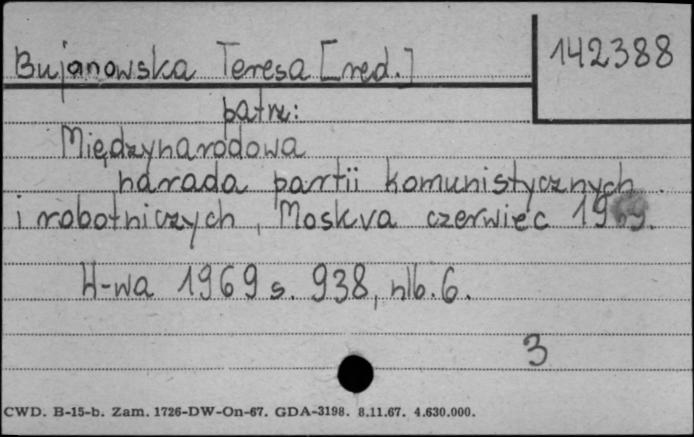 Bujanowska Teresa [red.]
142388
patrz:
Międzynarodowa
narada partii komunistycznych
i robotniczych, Moskva czerwiec 1969.
W-wa 1969 s. 938, nlb. 6.
3
CWD. B-15-b. Zam. 1726-DW-On-67. GDA-3198. 8.11.67. 4.630.000.